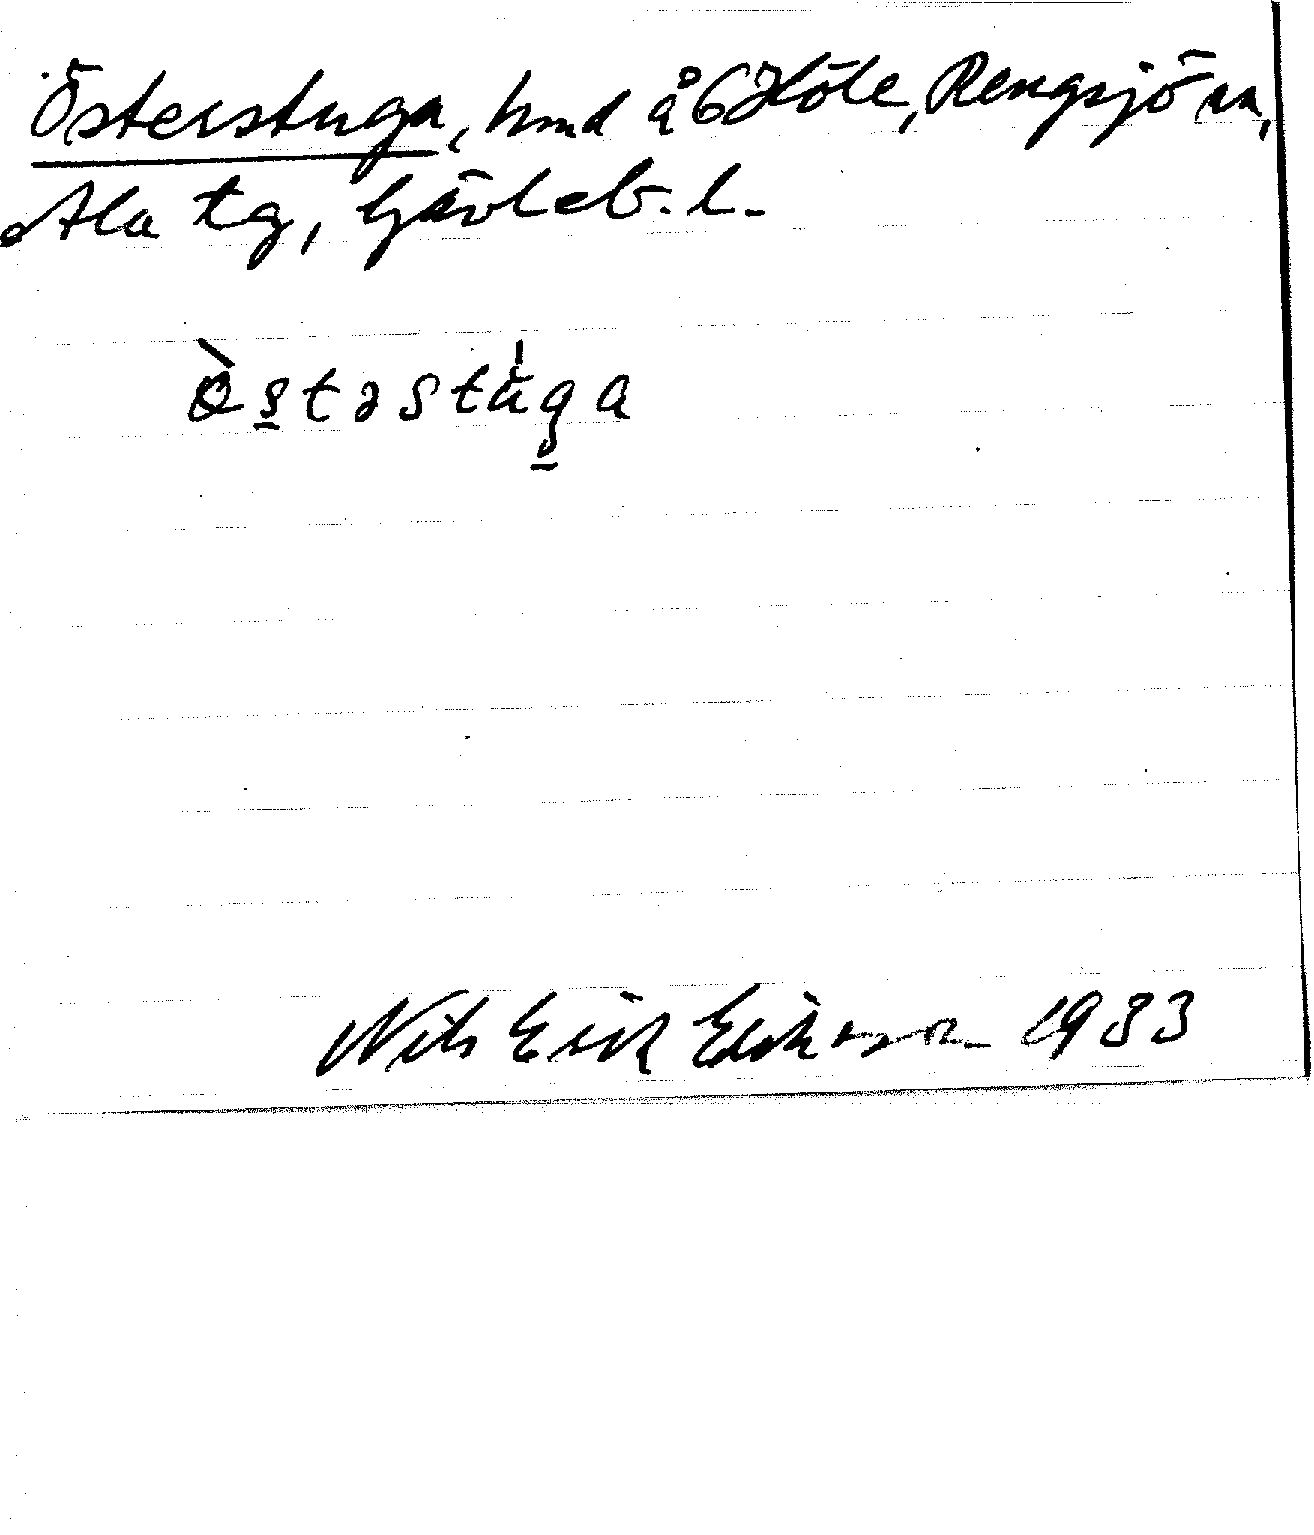 Österstuga, hmd å 6 Höle, Rengsjö sn,
Ala tg, Gävleb. l.
Östəstuga
Nils Erik Eriksson 1933